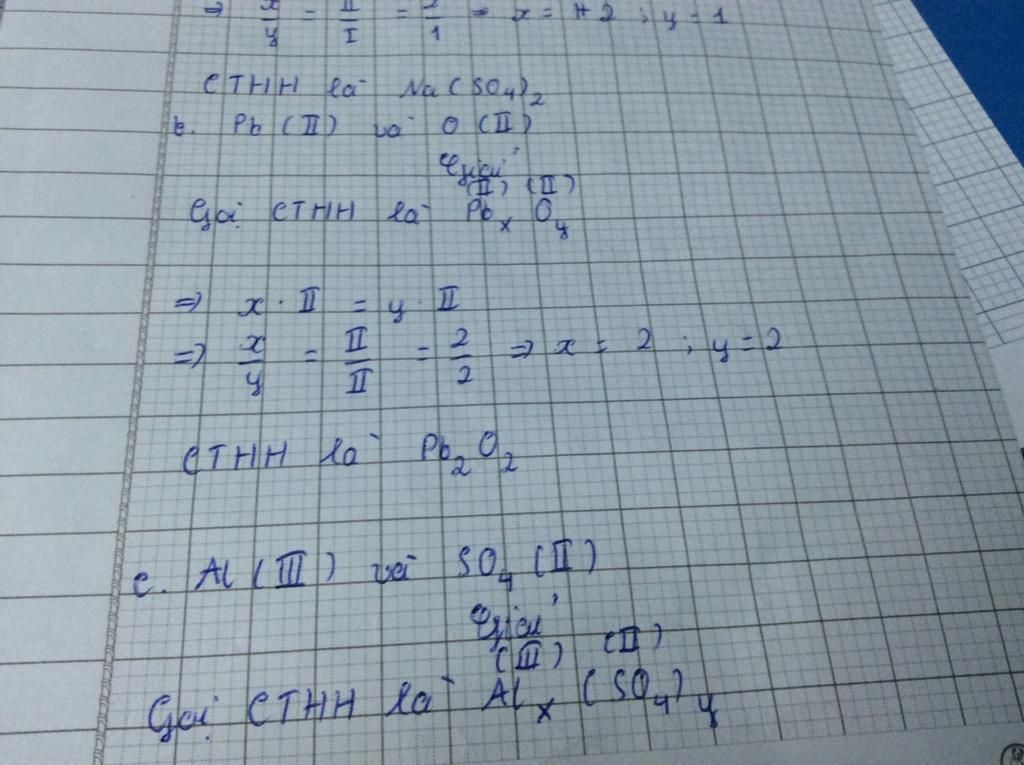 => x/y = II/I = 2/1 => x = 2 ; y = 1
CTHH là Na(SO4)2
b. Pb (II) và O (II)
Giải
(II) (II)
Gọi CTHH là Pbx Oy
=> x . II = y . II
=> x/y = II/II = 2/2 => x = 2 ; y = 2
CTHH là Pb2O2
c. Al (III) với SO4 (II)
Giải
(III) (II)
Gọi CTHH là Alx (SO4)y